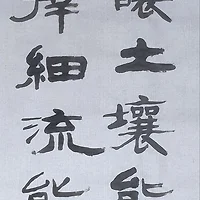 讓土壤能
擇細流能